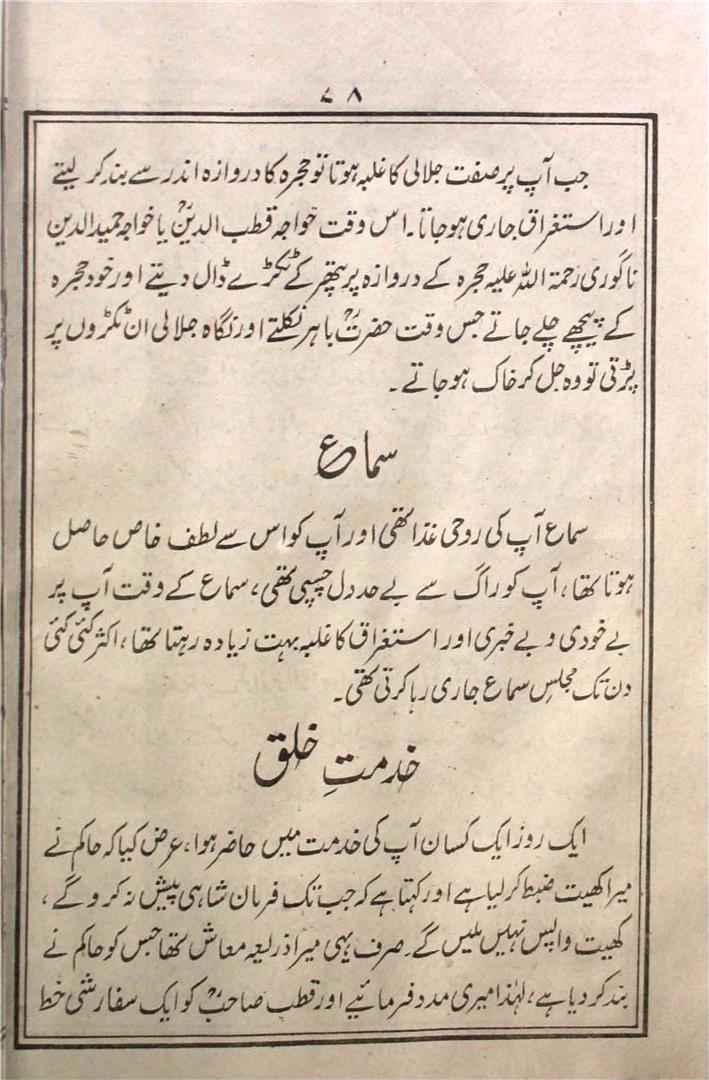 ۷۸
جب آپ پر صفت جلالی کا غلبہ ہوتا تو حجرہ کا دروازہ اندر سے بند کر لیتے
اور استغراق جاری ہو جاتا۔ اس وقت خواجہ قطب الدینؒ یا خواجہ حمید الدین
ناگوری رحمۃ اللہ علیہ حجرہ کے دروازہ پر پتھر کے ٹکڑے ڈال دیتے اور خود حجرہ
کے پیچھے چلے جاتے جس وقت حضرتؒ باہر نکلتے اور نگاہ جلالی ان ٹکڑوں پر
پڑتی تو وہ جل کر خاک ہو جاتے۔
سماع
سماع آپ کی روحی غذا تھی اور آپ کو اس سے لطف خاص حاصل
ہوتا تھا، آپ کو راگ سے بے حد دل چسپی تھی، سماع کے وقت آپ پر
بے خودی و بے خبری اور استغراق کا غلبہ بہت زیادہ رہتا تھا، اکثر کئی کئی
دن تک مجلسِ سماع جاری رہا کرتی تھی۔
خدمتِ خلق
ایک روز ایک کسان آپ کی خدمت میں حاضر ہوا، عرض کیا کہ حاکم نے
میرا کھیت ضبط کر لیا ہے اور کہتا ہے کہ جب تک فرمان شاہی پیش نہ کرو گے،
کھیت واپس نہیں ملیں گے۔ صرف یہی میرا ذریعہ معاش تھا جس کو حاکم نے
بند کر دیا ہے، لہٰذا میری مدد فرمائیے اور قطب صاحبؒ کو ایک سفارشی خط